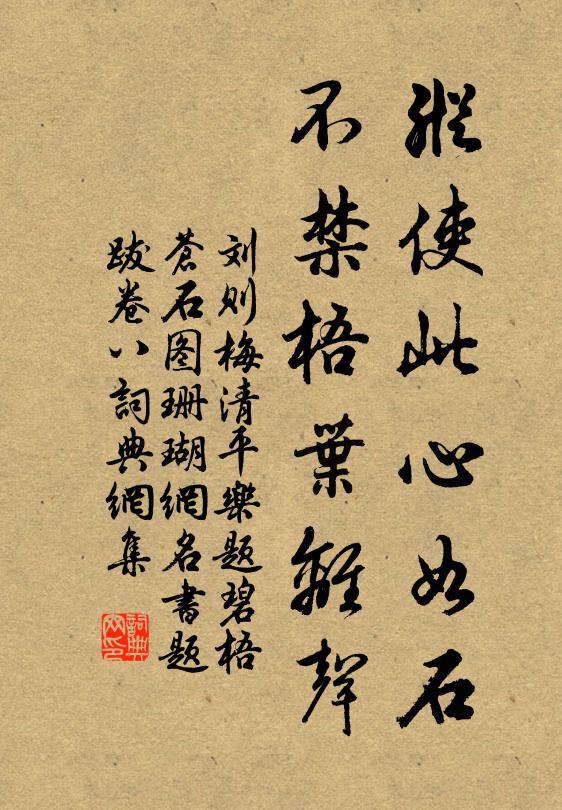 縱使此心如石
不禁梧葉離聲
刘则梅清平樂题碧梧
蒼石图珊瑚網名書题
跋卷八詞典網集
詞典網印